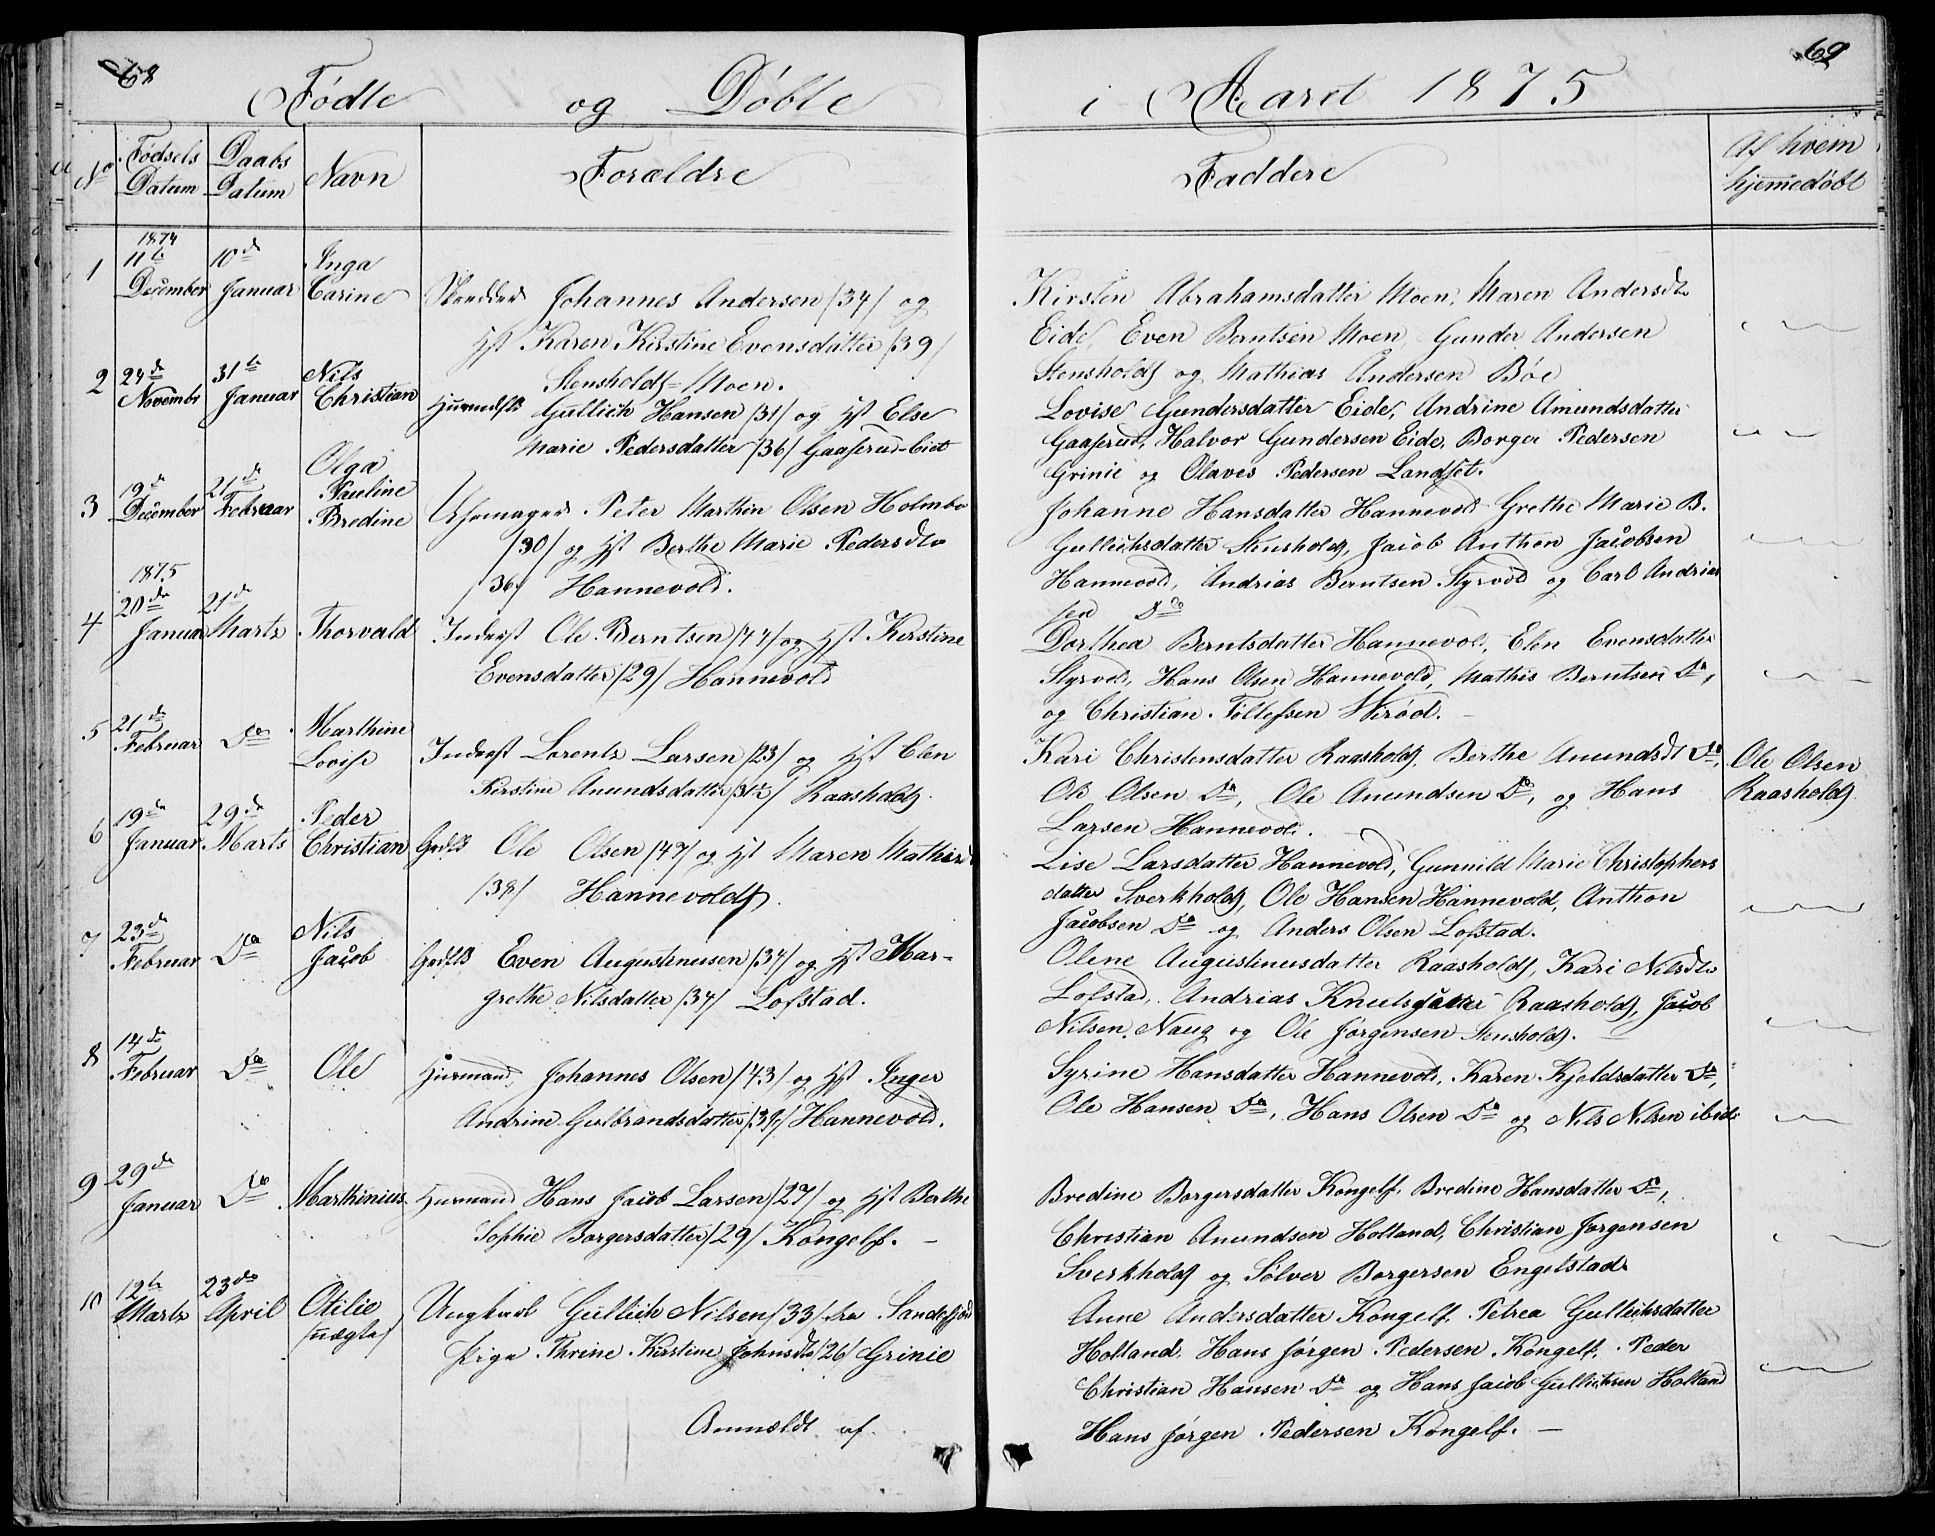 68
Fødte og Døbte
i Aaret 1875
69
No
Fødsels Datum
Daabs Datum
Navn
Forældre
Faddere
Af hvem hjemmedøbt
1
1874
11te December
10de Januar
Inga Carine
Skrædder Johannes Andersen /34/ og
Hst Karen Kirstine Evensdatter /39/
Stensholdt=Moen.
Kirsten Abrahamsdatter Moen, Maren Andersdtr
Eide, Even Berntsen Moen, Gunder Andersen
Stensholdt og Mathias Andersen Bøe
2
24de Novembr
31te Januar
Nils Christian
Huusmdsflk Gullich Hansen /31/ og Hst Else
Marie Pedersdatter /36/ Gaaserud-eiet
Lovise Gundersdatter Eide, Andrine Amundsdatter
Gaaserud, Halvor Gundersen Eide, Borger Pedersen
Grinie og Olaves Pedersen Landset.
3
19de December
21de Februar
Olga Pauline Bredine
Uhrmager Peter Marthin Olsen Holmbo
/30/ og Hst Berthe Marie Pedersdtr
/36/ Hannevold.
Johanne Hansdatter Hannevold Grethe Marie B.
Gullichsdatter Stensholdt, Jacob Anthon Jacobsen
Hannevold, Andrias Berntsen Styrvod og Carl Andrias
sen Do
4
1875
20de Januar
21de Marts
Thorvald
Inderst Ole Berntsen /44/ og Hst Kirstine
Evensdatter /29/ Hannevold
Dorthea Berntsdatter Hannevold, Elen Evensdatter
Styrvod, Hans Olsen Hannevold, Mathis Berntsen Do,
og Christian Tollefsen Virød.
5
21de Februar
Do
Marthine Lovise
Inderst Lorentz Larsen /23/ og Hst Elen
Kirstine Anundsdatter /31½/ Raasholdt.
Kari Christensdatter Raasholdt, Berthe Anundsdt Do,
Ole Olsen Do, Ole Anundsen Do, og Hans
Larsen Hannevold.
Ole Olsen
Raasholdt
6
19de Januar
29de Marts
Peder Christian
Grdflk Ole Olsen /47/ og Hst Maren Mathisd
/38/ Hannevoldt.
Lise Larsdatter Hannevold, Gunnild Marie Christophers
datter Sverkholdt, Ole Hansen Hannevold, Anthon
Jacobsen Do og Anders Olsen Lofstad.
7
23de Februar
Do
Nils Jacob
Grdflk Even Augustinusen /34/ og Hst Mar-
grethe Nilsdatter /34/ Lofstad.
Olene Augustinusdatter Raasholdt, Kari Nilsdtr
Lofstad, Andrias Knutsdatter Raasholdt, Jacob
Nilsen Naug og Ole Jørgensen Stensholdt.
8
14de Februar
Do
Ole
Huusmand, Johannes Olsen /43/ og Hst Inger
Andrine Gulbrandsdatter /39/ Hannevold.
Syrine Hansdatter Hannevold, Karen Kjeldsdatter Do,
Ole Hansen Do, Hans Olsen Do og Nils Nilsen ibid.
9
29de Januar
Do
Marthinius
Huusmand Hans Jacob Larsen /27/ og Hst Berthe
Sophie Borgersdatter /29/ Kongelf.
Bredine Borgersdatter Kongelf, Bredine Hansdatter Do,
Christian Anundsen Holland, Christian Jørgensen
Sverkholdt og Sølver Borgersen Engelstad
10
12te Marts
23de April
Otilie
/uægte/
Ungkarl Gullich Nilsen /33/ fra Sandefjord
Pige Thrine Kirstine Johnsdtr /26/ Grinie
Anmeldt af
Anne Andersdatter Kongelf, Petrea Gullichsdatter
Holland, Hans Jørgen Pedersen Kongelf, Peder
Christian Hansen Do og Hans Jacob Gullichsen Holland
Hans Jørgen Pedersen Kongelf.